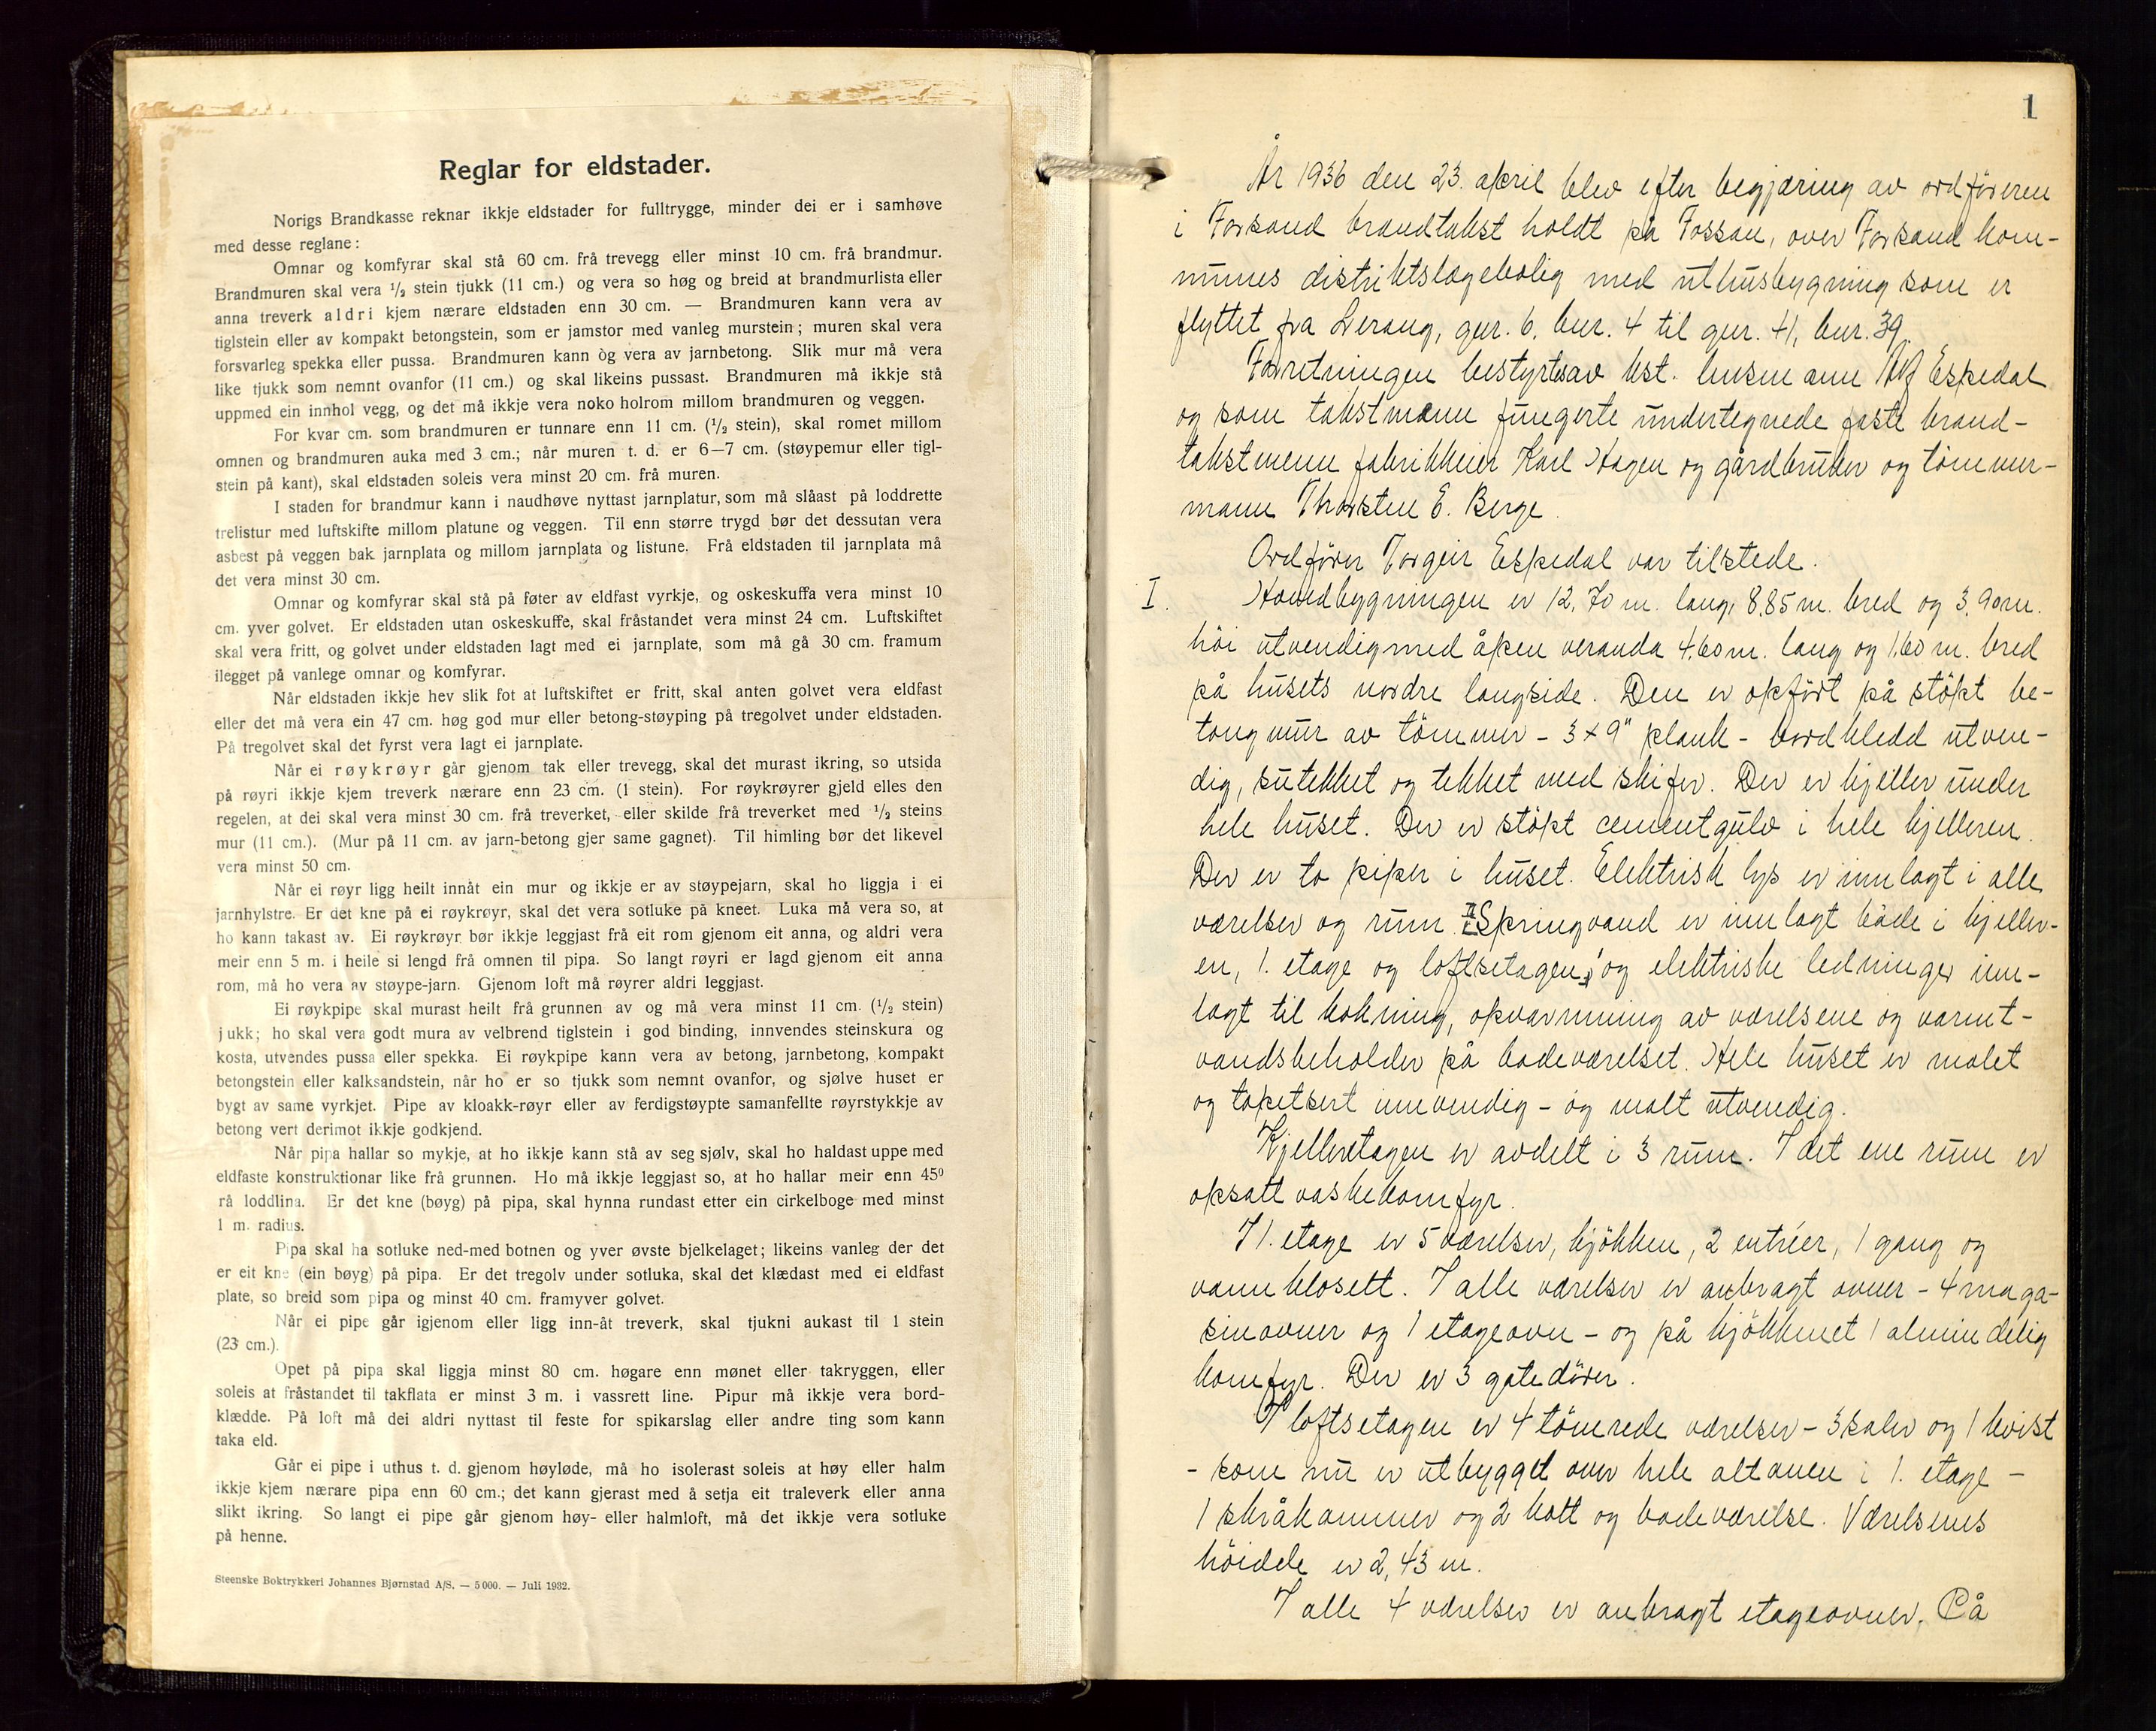 Reglar for eldstader.
Norigs Brandkasse reknar ikkje eldstader for fulltrygge, minder dei er i samhøve
med desse reglane:
Omnar og komfyrar skal stå 60 cm. frå trevegg eller minst 10 cm. frå brandmur.
Brandmuren skal vera ½ stein tjukk (11 cm.) og vera so høg og breid at brandmurlista eller
anna treverk aldri kjem nærare eldstaden enn 30 cm. — Brandmuren kann vera av
tiglstein eller av kompakt betongstein, som er jamstor med vanleg murstein; muren skal vera
forsvarleg spekka eller pussa. Brandmuren kann òg vera av jarnbetong. Slik mur må vera
like tjukk som nemnt ovanfor (11 cm.) og skal likeins pussast. Brandmuren må ikkje stå
uppmed ein innhol vegg, og det må ikkje vera noko holrom millom brandmuren og veggen.
For kvar cm. som brandmuren er tunnare enn 11 cm. (½ stein), skal romet millom
omnen og brandmuren auka med 3 cm.; når muren t. d. er 6—7 cm. (støypemur eller tigl-
stein på kant), skal eldstaden soleis vera minst 20 cm. frå muren.
I staden for brandmur kann i naudhøve nyttast jarnplatur, som må slåast på loddrette
trelistur med luftskifte millom platune og veggen. Til enn større trygd bør det dessutan vera
asbest på veggen bak jarnplata og millom jarnplata og listune. Frå eldstaden til jarnplata må
det vera minst 30 cm.
Omnar og komfyrar skal stå på føter av eldfast vyrkje, og oskeskuffa vera minst 10
cm. yver golvet. Er eldstaden utan oskeskuffe, skal fråstandet vera minst 24 cm. Luftskiftet
skal vera fritt, og golvet under eldstaden lagt med ei jarnplate, som må gå 30 cm. framum
ilegget på vanlege omnar og komfyrar.
Når eldstaden ikkje hev slik fot at luftskiftet er fritt, skal anten golvet vera eldfast
eller det må vera ein 47 cm. høg god mur eller betong-støyping på tregolvet under eldstaden.
På tregolvet skal det fyrst vera lagt ei jarnplate.
Når ei røykrøyr går gjenom tak eller trevegg, skal det murast ikring, so utsida
på røyri ikkje kjem treverk nærare enn 23 cm. (1 stein). For røykrøyrer gjeld elles den
regelen, at dei skal vera minst 30 cm. frå treverket, eller skilde frå treverket med ½ steins
mur (11 cm.). (Mur på 11 cm. av jarn-betong gjer same gagnet). Til himling bør det likevel
vera minst 50 cm.
Når ei røyr ligg heilt innåt ein mur og ikkje er av støypejarn, skal ho liggja i ei
jarnhylstre. Er det kne på ei røykrøyr, skal det vera sotluke på kneet. Luka må vera so, at
ho kann takast av. Ei røykrøyr bør ikkje leggjast frå eit rom gjenom eit anna, og aldri vera
meir enn 5 m. i heile si lengd frå omnen til pipa. So langt røyri er lagd gjenom eit anna
rom, må ho vera av støype-jarn. Gjenom loft må røyrer aldri leggjast.
Ei røykpipe skal murast heilt frå grunnen av og må vera minst 11 cm. (½ stein)
jukk; ho skal vera godt mura av velbrend tiglstein i god binding, innvendes steinskura og
kosta, utvendes pussa eller spekka. Ei røykpipe kann vera av betong, jarnbetong, kompakt
betongstein eller kalksandstein, når ho er so tjukk som nemnt ovanfor, og sjølve huset er
bygt av same vyrkjet. Pipe av kloakk-røyr eller av ferdigstøypte samanfellte røyrstykkje av
betong vert derimot ikkje godkjend.
Når pipa hallar so mykje, at ho ikkje kann stå av seg sjølv, skal ho haldast uppe med
eldfaste konstruktionar like frå grunnen. Ho må ikkje leggjast so, at ho hallar meir enn 45⁰
rå loddlina. Er det kne (bøyg) på pipa, skal hynna rundast etter ein cirkelboge med minst
1 m. radius.
Pipa skal ha sotluke ned-med botnen og yver øvste bjelkelaget; likeins vanleg der det
er eit kne (ein bøyg) på pipa. Er det tregolv under sotluka, skal det klædast med ei eldfast
plate, so breid som pipa og minst 40 cm. framyver golvet.
Når ei pipe går igjenom eller ligg inn-åt treverk, skal tjukni aukast til 1 stein
(23 cm.).
Opet på pipa skal liggja minst 80 cm. høgare enn mønet eller takryggen, eller
soleis at fråstandet til takflata er minst 3 m. i vassrett line. Pipur må ikkje vera bord-
klædde. På loft må dei aldri nyttast til feste for spikarslag eller andre ting som kann
taka eld.
Går ei pipe i uthus t. d. gjenom høyløde, må ho isolerast soleis at høy eller halm
ikkje kjem nærare pipa enn 60 cm.; det kann gjerast med å setja eit traleverk eller anna
slikt ikring. So langt ei pipe går gjenom høy- eller halmloft, må det ikkje vera sotluke
på henne.
Steenske Boktrykkeri Johannes Bjørnstad A/S. — 5000. — Juli 1932.
1
År 1936 den 23. april blev efter begjæring av ordföreren
i Forsand brandtakst holdt på Fossan, over Forsand kom-
munes distriktslægebolig med uthusbygning som er
flyttet fra Lerang, gnr. 6. bnr. 4 til gnr. 41, bnr. 39.
Forretningen bestyrtes av kst. lensmann Alf Espedal
og som takstmænn fungerte undertegnede faste brand-
takstmenn fabrikkeier Karl Hagen og gårdbruker og tömmer-
mann Thorsten E. Berge.
Ordförer Torgeir Espedal var tilstede.
I. Hovedbygningen er 12,70 m. lang, 8,85 m. bred og 3,90 m.
höi utvendig med åpen veranda 4,60 m. lang og 1,60 m. bred
på husets nordre langside. Den er opfört på stöpt be-
tongmur av tömmer - 3 x 9" plank - bordkledd utven-
dig, sutekket og tekket med skifer. Der er kjeller under
hele huset. Der er stöpt cementgulv i hele kjelleren.
Der er to piper i huset. Elektrisk lys er innlagt i alle
værelser og rum. Springvand er innlagt både i kjeller-
en, 1. etage og loftsetagen, og elektriske ledninger inn-
lagt til kokning, opvarmning av værelsene og varmt-
vandsbeholder på badeværelset. Hele huset er malet
og tapetsert innvendig - og malt utvendig.
Kjelleretagen er avdelt i 3 rum. I det ene rum er
opsatt vaskekomfyr.
I 1. etage er 5 værelser, kjökken, 2 entréer, 1 gang og
vannklosett. I alle værelser er anbragt ovner - 4 maga-
sinovner og 1 etageovn - og på kjökkenet 1 almindelig
komfyr. Der er 3 gatedörer.
I loftsetagen er 4 tömrede værelser - 3 saler og 1 kvist
- som nu er utbygget over hele altanen i 1. etage -
1 skråkammer og 2 kott og badeværelse. Værelsenes
höidde er 2,43 m.
I alle 4 værelser er anbragt etageovner. På